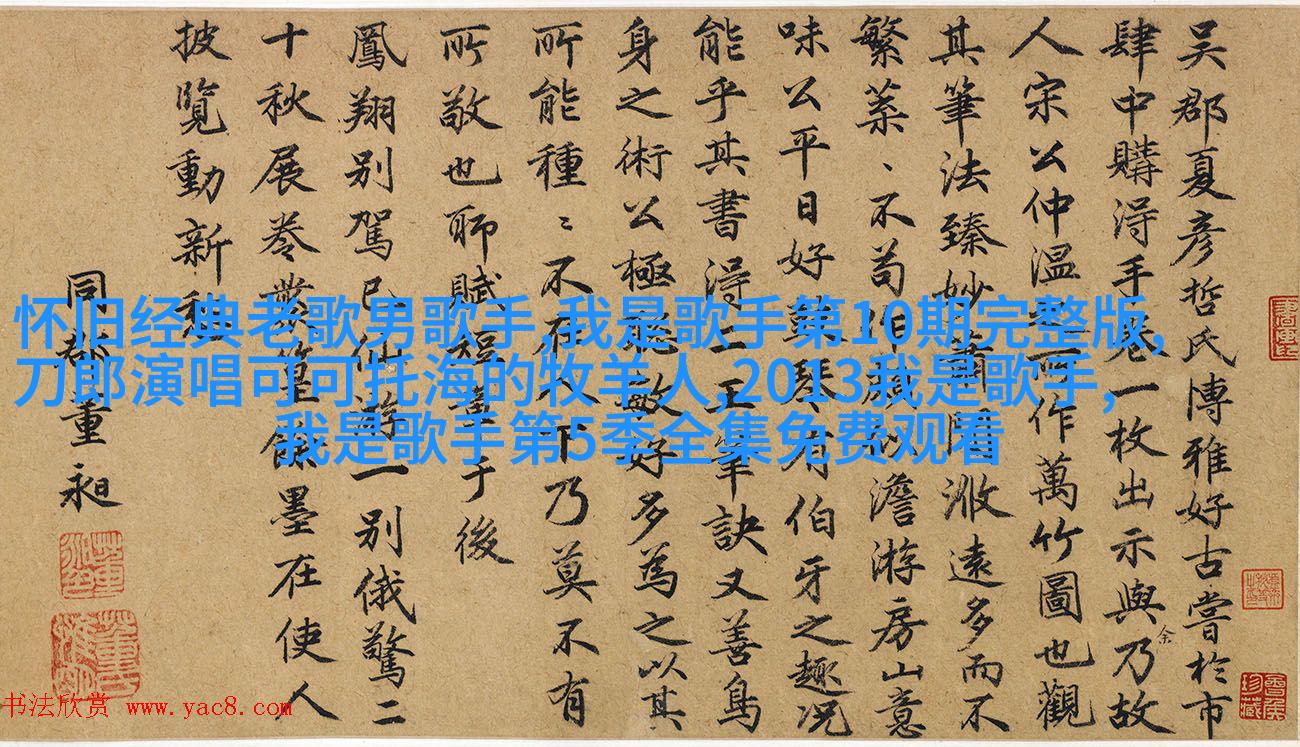 吴郡夏彦哲氏博雅好古嘗於市
肆中購淂手卷一枚出示與余乃故
人宋公仲温所作萬竹圖也觀
其筆法臻妙蕭闲㳂遠多而不
繁蒃、不苟似淡澹游房山意
味公平日好琴有伯牙之趣况
能乎其書淂二王筆訣又善鳥
身之術公極能敏好多為之以其
所能種〻不在人下乃莫不有
所敬也聊賦短章于後
鳳翔别駕已仙游一别俄驚二
十秋展卷無篁餘墨在使人
披覽動新
同郡董昶
怀旧经典老歌男歌手,我是歌手第10期完整版,
刀郎演唱可可托海的牧羊人,2013我是歌手,
我是歌手第5季全集免费观看
书法欣赏 www.yac8.com